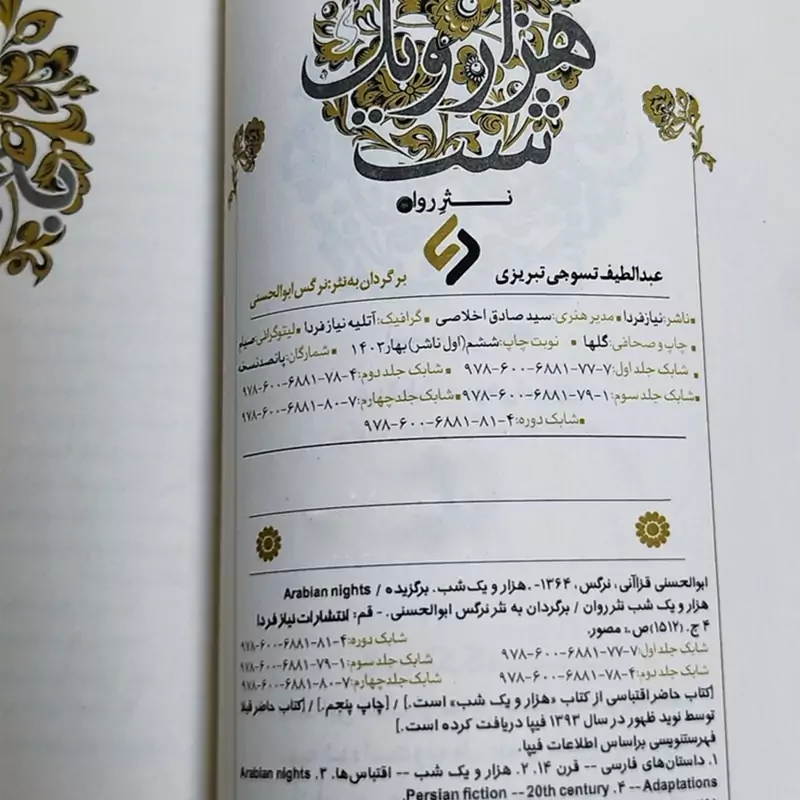 هزار و یک
شب
نثر روان
عبدالطیف تسوجی تبریزی برگردان به نثر: نرگس ابوالحسنی
ناشر: نیاز فردا مدیر هنری: سید صادق اخلاصی گرافیک: آتلیه نیاز فردا لیتوگرافی:
چاپ و صحافی: گلها نوبت چاپ: ششم (اول ناشر) بهار ۱۴۰۳ شمارگان: پانصد نسخه
شابک جلد اول: ۷-۷۷-۶۸۸۱-۶۰۰-۹۷۸ شابک جلد دوم: ۴-۷۸-۶۸۸۱-۶۰۰-۹۷۸
شابک جلد سوم: ۱-۷۹-۶۸۸۱-۶۰۰-۹۷۸ شابک جلد چهارم: ۷-۸۰-۶۸۸۱-۶۰۰-۹۷۸
شابک دوره: ۴-۸۱-۶۸۸۱-۶۰۰-۹۷۸
ابوالحسنی قزاآنی، نرگس، ۱۳۶۴- . هزار و یک شب. برگزیده / Arabian nights
هزار و یک شب نثر روان / برگردان به نثر نرگس ابوالحسنی. - قم: انتشارات نیاز فردا
۴ ج. (۱۵۱۲) ص.: مصور. شابک دوره: ۴-۸۱-۶۸۸۱-۶۰۰-۹۷۸
شابک جلد اول: ۷-۷۷-۶۸۸۱-۶۰۰-۹۷۸ شابک جلد سوم: ۱-۷۹-۶۸۸۱-۶۰۰-۹۷۸
شابک جلد دوم: ۴-۷۸-۶۸۸۱-۶۰۰-۹۷۸ شابک جلد چهارم: ۷-۸۰-۶۸۸۱-۶۰۰-۹۷۸
[کتاب حاضر اقتباسی از کتاب «هزار و یک شب» است.] / [چاپ پنجم.] / [کتاب حاضر قبلا
توسط نوید ظهور در سال ۱۳۹۳ فیپا دریافت کرده است.]
فهرستنویسی براساس اطلاعات فیپا.
۱. داستان‌های فارسی -- قرن ۱۴. ۲. هزار و یک شب -- اقتباس‌ها. ۳. Arabian nights
-- Adaptations ۴. Persian fiction -- 20th century.